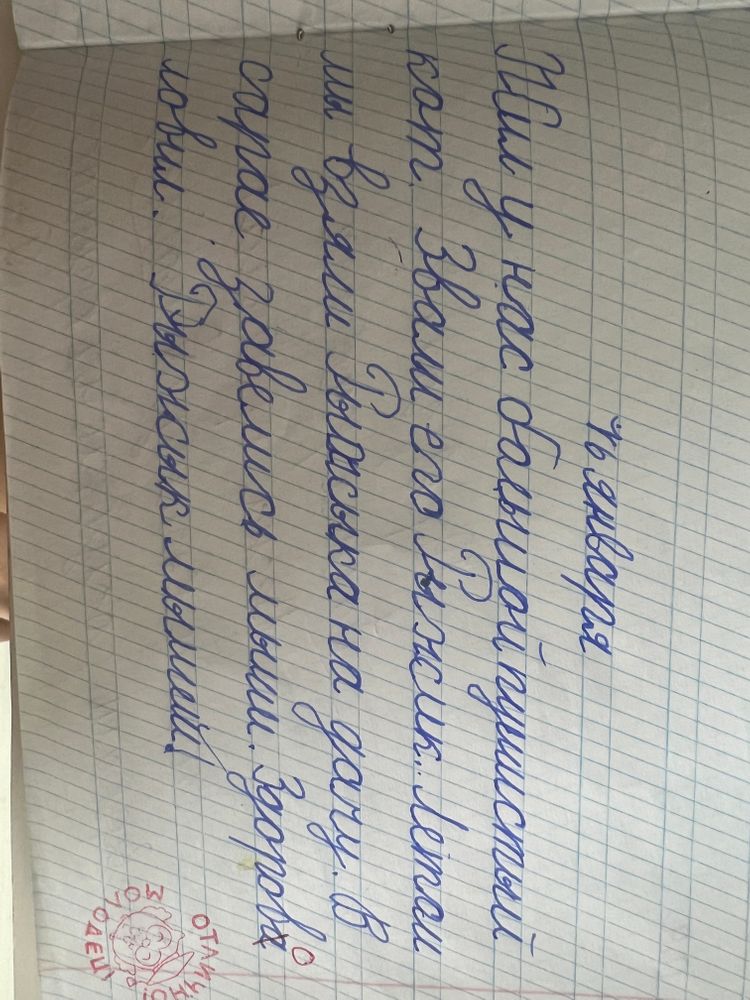 ть января
Жил у нас большой пушистый
кот. Звали его Рыжик. Летом
мы взяли Рыжыка на дачу. В
сарае завелись мыши. Здорова
о
ловил. Рыжык мышей!
ОТЛИЧНО!
МОЛОДЕЦ!